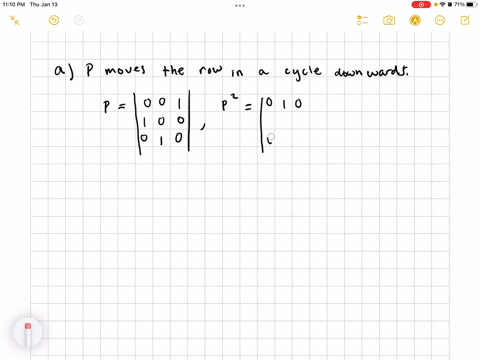 11:10 PM Thu Jan 13
71%
a) P moves the row in a cycle downwards.
P = | 0 0 1 | , P² = | 0 1 0
| 1 0 0 |
| 0 1 0 |